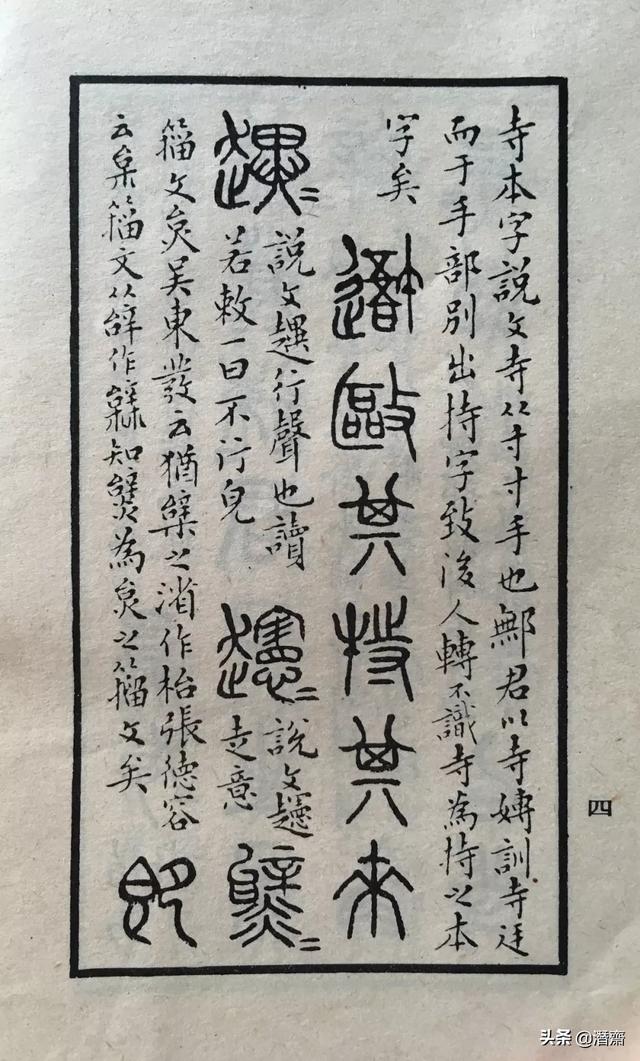 寺本字說文寺从寸寸手也鄦君以寺嫥訓寺廷
而于手部別出持字致後人轉不識寺為持之本
字矣
敺其特其來
趩=
說文趩行聲也讀
若敕一曰不行皃
說文
走意
籀文炱吴東發云猶之渻作枱張德容
云枲籀文从辝作知為炱之籀文矣
即
四
头条 @潛齋